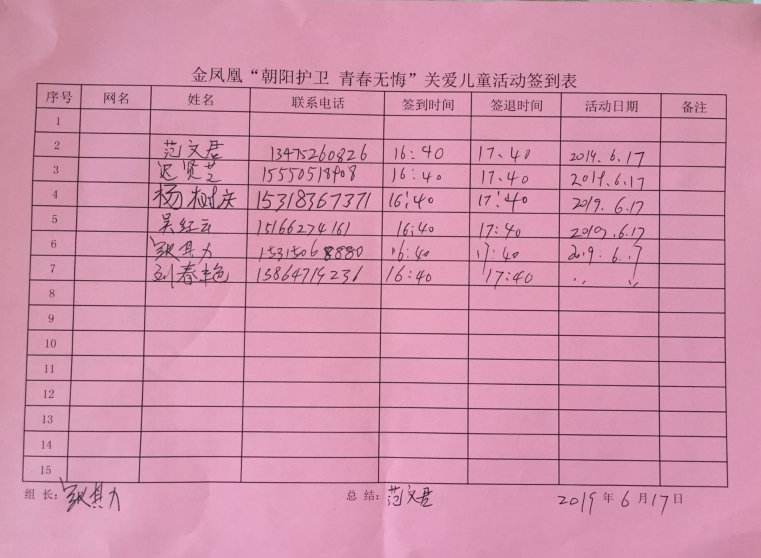 金凤凰“朝阳护卫 青春无悔”关爱儿童活动签到表
序号 网名 姓名 联系电话 签到时间 签退时间 活动日期 备注
1
2 范文君 13475260826 16:40 17.40 2019.6.17
3 迟贤芝 15550518908 16:40 17.40 2019.6.17
4 杨树庆 15318367371 16:40 17:40 2019.6.17
5 吴红云 15166274161 16:40 17:40 2019.6.17
6 张其力 15315068880 16:40 17:40 2019.6.17
7 刘春艳 13864719236 16:40 17:40 〃 〃
8
9
10
11
12
13
14
15
组 长: 张其力 总 结: 范文君 2019 年 6 月 17 日